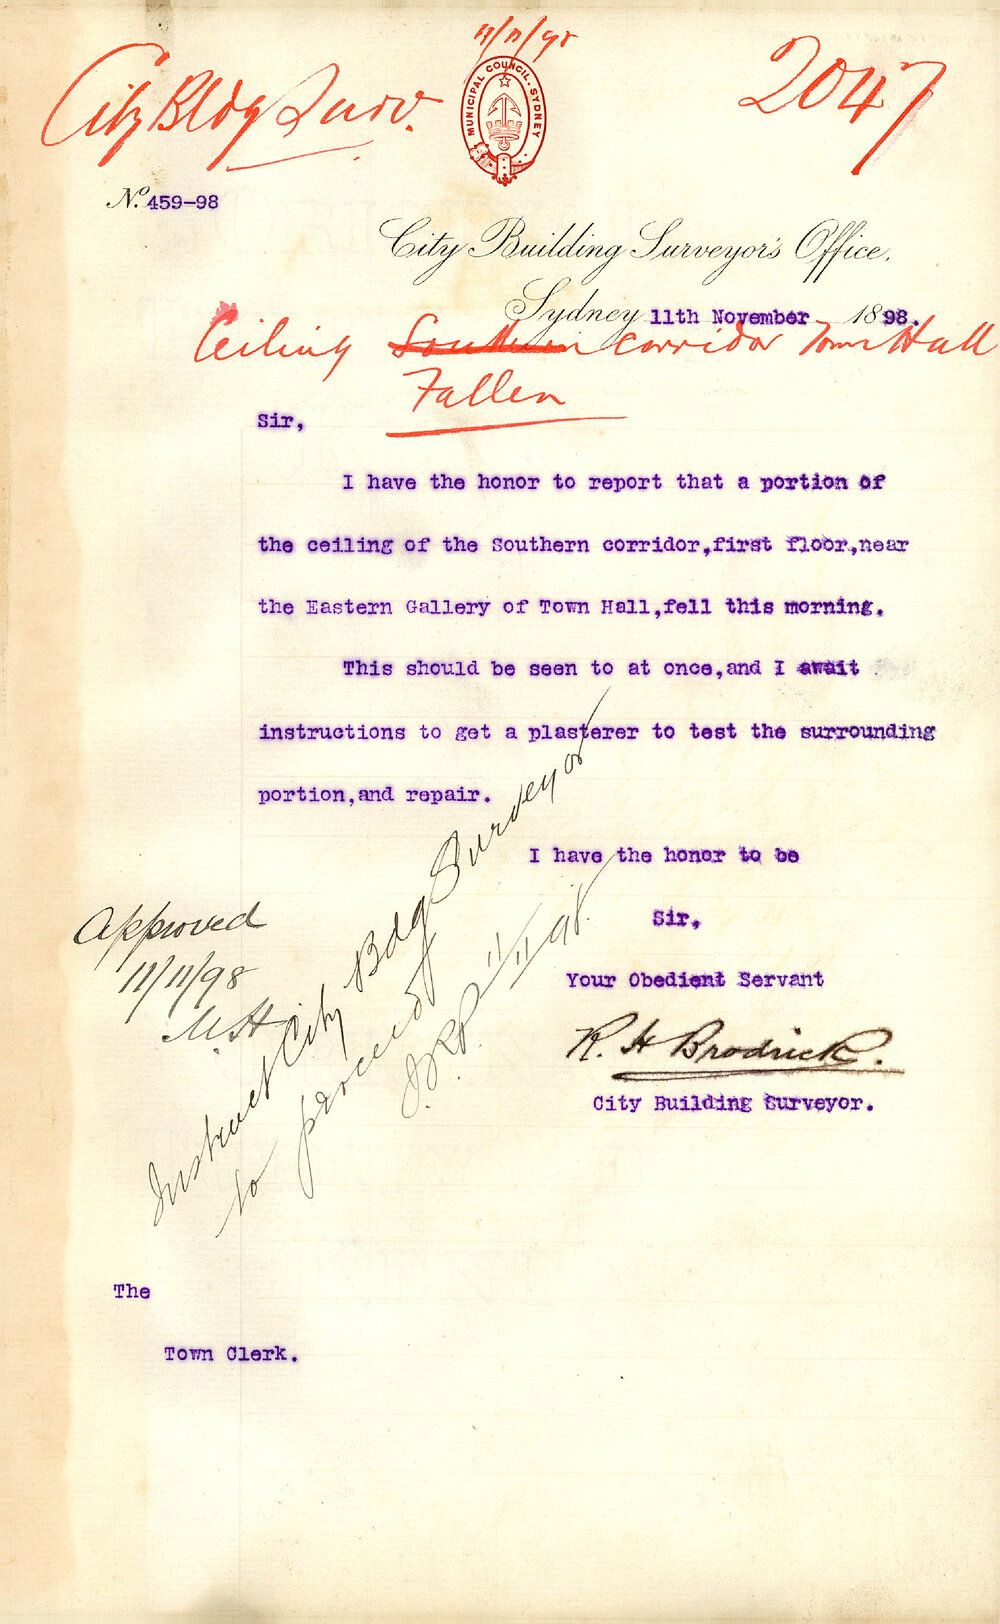 11/11/98
City Bldg Surv.
2047
MUNICIPAL COUNCIL. SYDNEY
No. 459-98
City Building Surveyor's Office.
Sydney 11th November 1898.
Ceiling Southern corridor Town Hall
Fallen
Sir,
I have the honor to report that a portion of
the ceiling of the Southern corridor,first floor,near
the Eastern Gallery of Town Hall,fell this morning.
This should be seen to at once,and I await
instructions to get a plasterer to test the surrounding
portion,and repair.
I have the honor to be
Sir,
Your Obedient Servant
R. H Brodrick.
City Building Surveyor.
Approved
11/11/98
M.H
Instruct City Bdg Surveyor
to proceed
11/11/98.
The
Town Clerk.